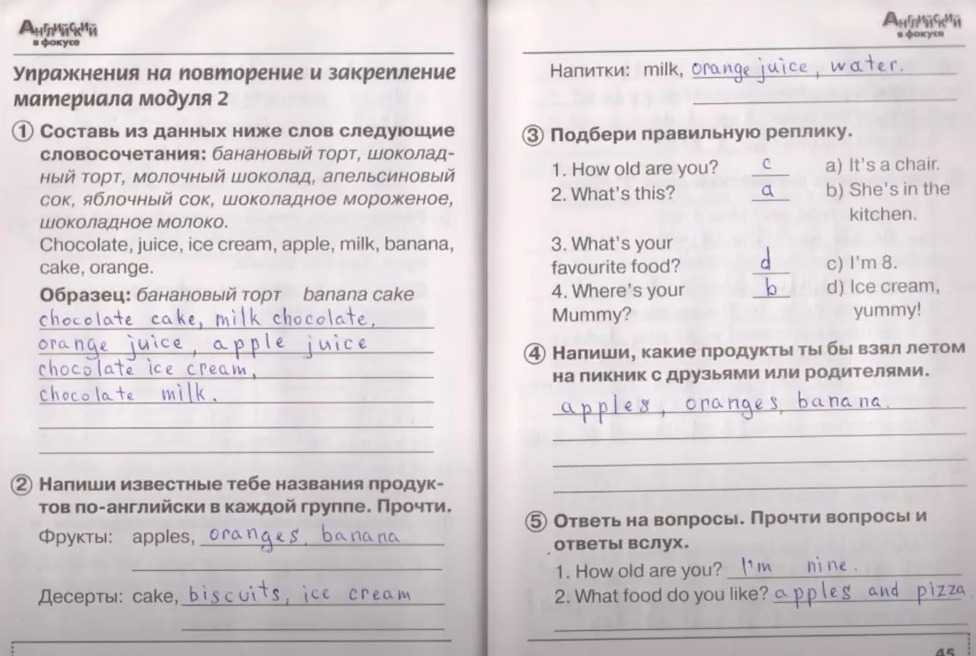 Английский
в фокусе
Упражнения на повторение и закрепление
материала модуля 2
1 Составь из данных ниже слов следующие
словосочетания: банановый торт, шоколад-
ный торт, молочный шоколад, апельсиновый
сок, яблочный сок, шоколадное мороженое,
шоколадное молоко.
Chocolate, juice, ice cream, apple, milk, banana,
cake, orange.
Образец: банановый торт banana cake
chocolate cake, milk chocolate,
orange juice, apple juice
chocolate ice cream,
chocolate milk.
2 Напиши известные тебе названия продук-
тов по-английски в каждой группе. Прочти.
Фрукты: apples, oranges, banana
Десерты: cake, biscuits, ice cream
Английский
в фокусе
Напитки: milk, orange juice, water.
3 Подбери правильную реплику.
1. How old are you? c a) It's a chair.
2. What's this? a b) She's in the
kitchen.
3. What's your
favourite food? d c) I'm 8.
4. Where's your b d) Ice cream,
Mummy? yummy!
4 Напиши, какие продукты ты бы взял летом
на пикник с друзьями или родителями.
apples, oranges, banana.
5 Ответь на вопросы. Прочти вопросы и
ответы вслух.
1. How old are you? I'm nine.
2. What food do you like? apples and pizza.
45